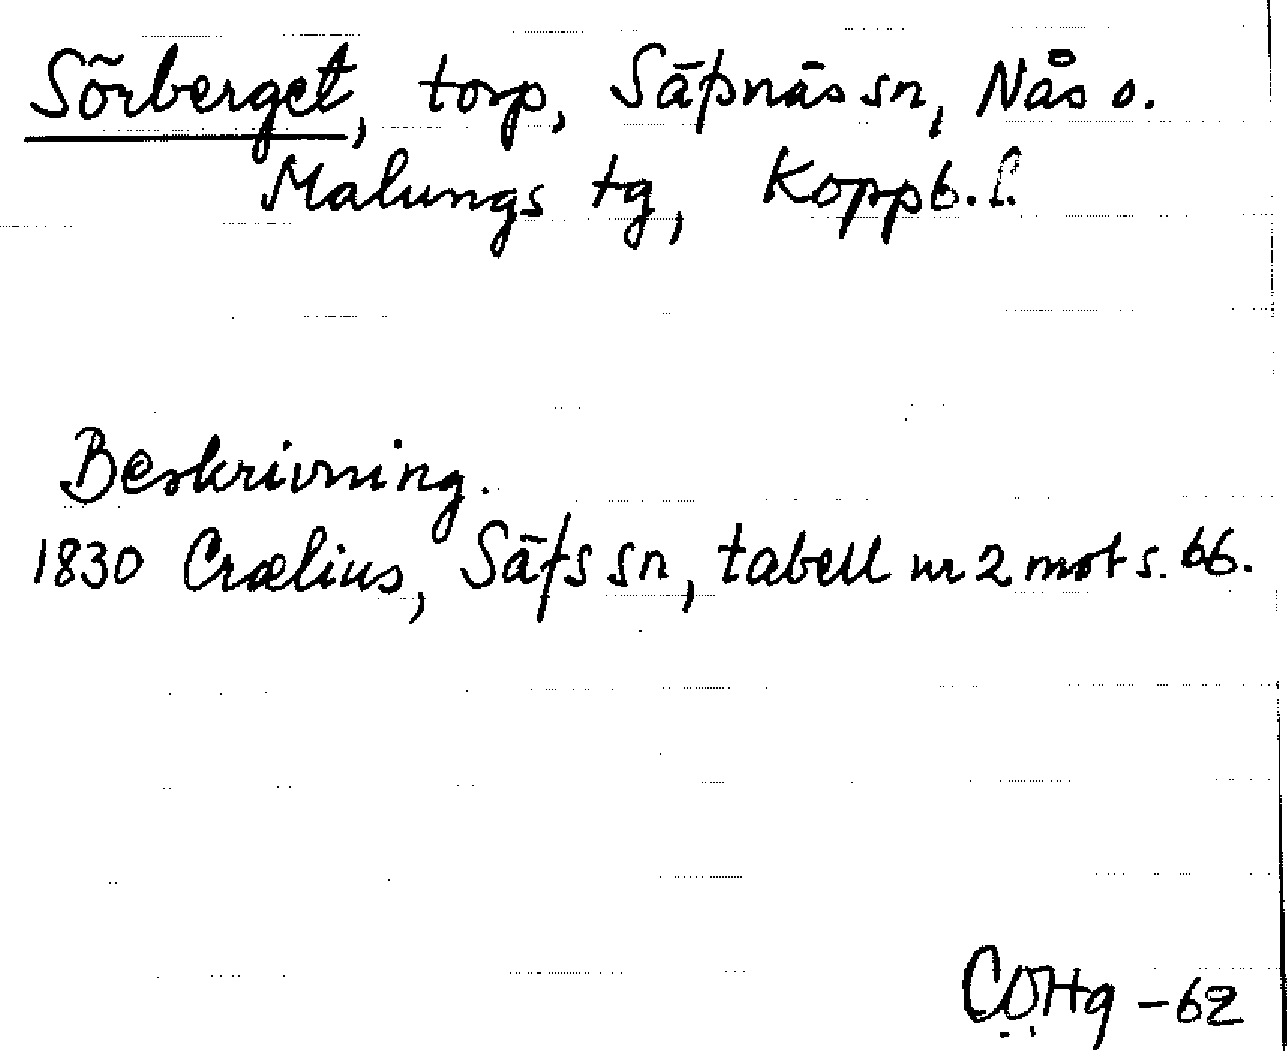 Sörberget, torp, Säfsnäs sn, Nås o.
Malungs tg, Koppb. l.
Beskrivning.
1830 Crælius, Säfs sn, tabell nr 2 mot s. 66.
CÖHg -62